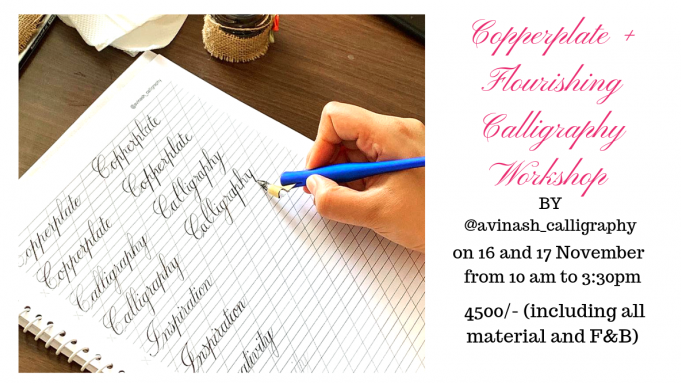 @avinash_calligraphy
opperplate Copperplate
Copperplate Copperplate
Calligraphy Calligraphy
Calligraphy Calligraphy
Inspiration
Inspiration
ativity
Copperplate +
Flourishing
Calligraphy
Workshop
BY
@avinash_calligraphy
on 16 and 17 November
from 10 am to 3:30pm
4500/- (including all
material and F&B)